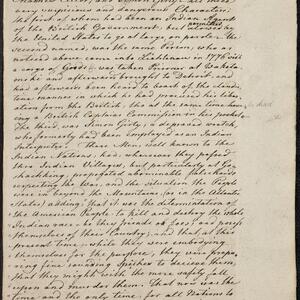 very suspicious and damnyent Character,
the first of whom had been an Indian Agent
of the British Government, but
permitted by
the United States to go at large on parole. The
second named, was the same Person, who as
noticed above came into Lichtenau in 1776 with
a Cargo of Goods; was taken Prisoner
and afterwards brought to Detroit, and
had afterwards been heard to boast of the
manner in which he had his libe-
ration from the British, tho at the same time
he had
a British Captains Commission in his pocket.
The third, was Simon Girty, a depraved wretch,
who formerly had been employed as an Indian
Interpreter. These Men, well known to the
Indian Nations, had, wherever they passed
thro Indian Villages, but particularly at Go-
schachking, propogated abominable falshoods
respecting the War, and the situation the People
were in beyond the Mountains, (or in the Atlantic
States) adding, that it was the determination of
the American People to kill and destroy the whole
Indian race, be they friends or foes, and possess
themselves of their Country; and that at this
present time, while they were embodying
themselves for the purpose, they were prepa-
ring fine sounding speeches to decieve them,
that they might with the more safety fall
upon and murder them. That now was the
time and the only time, for all Nations to